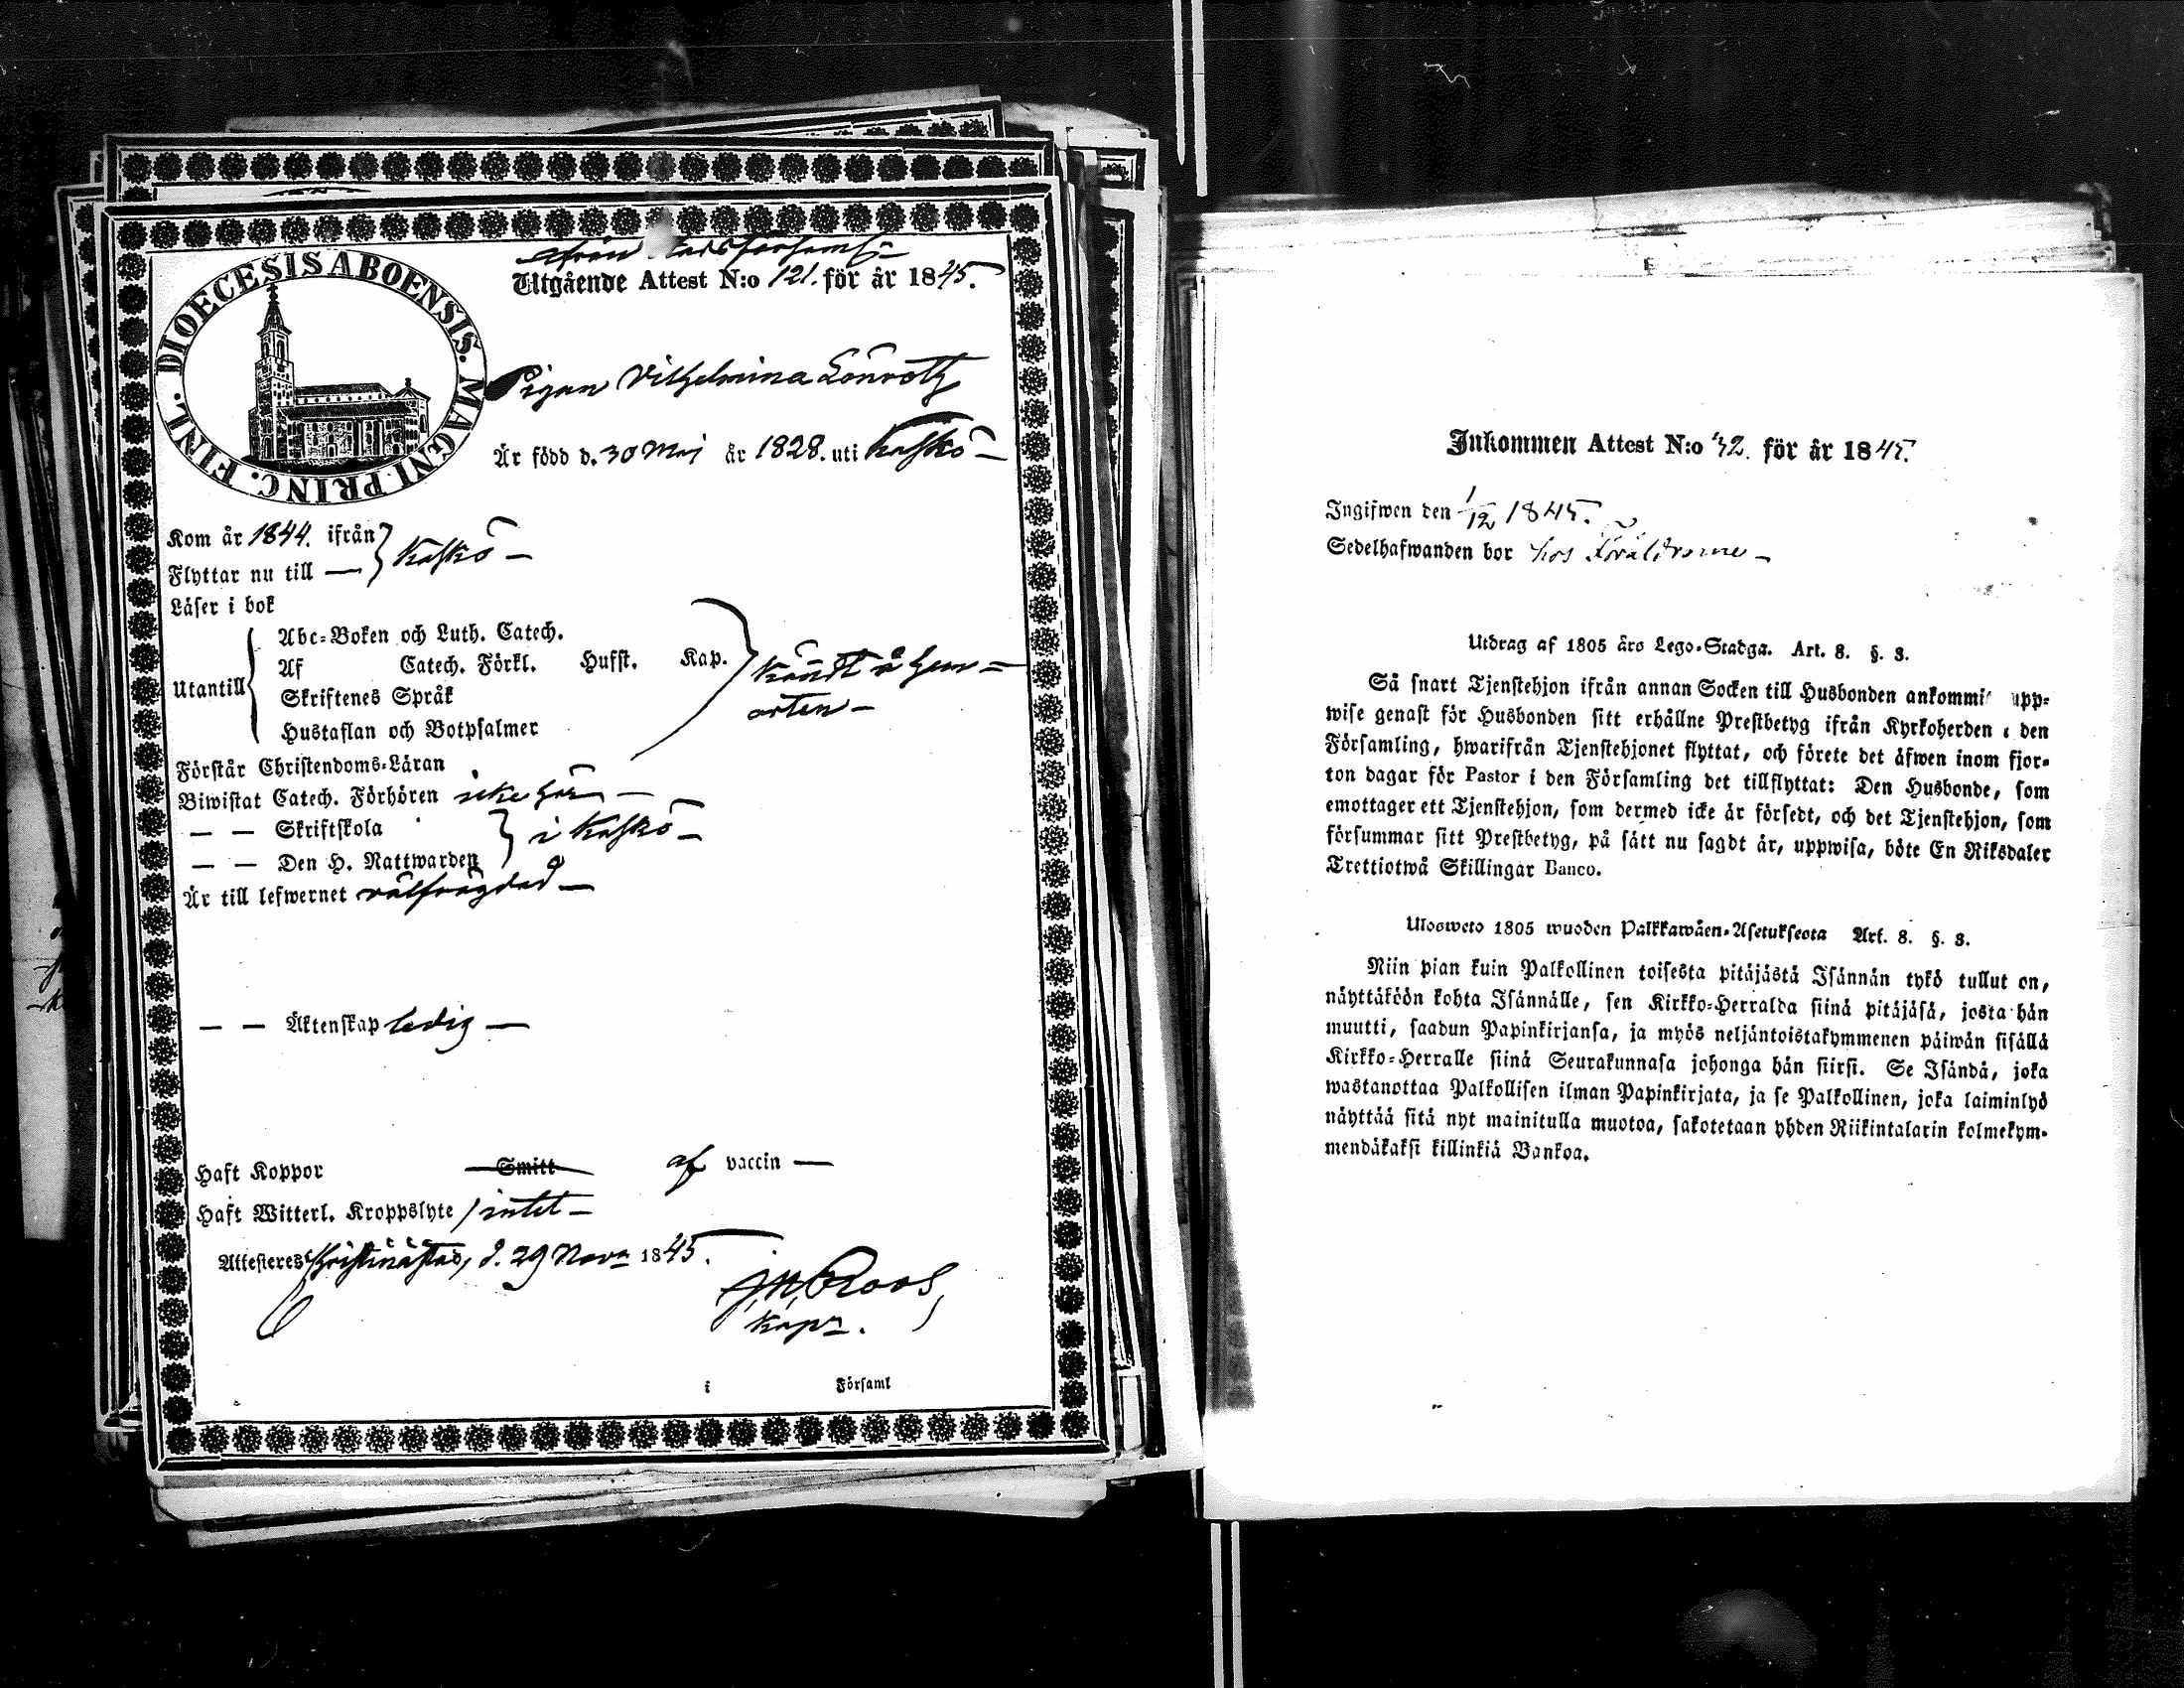 ifrån Stadsförsaml
Utgående Attest N:o 121. för år 1845.
DIOECESIS ABOENSIS. MAGNI. PRINC. FINL.
Pigan Vilhelmina Lönroth
Är född d. 30 Maj år 1828. uti Kaskö –
Kom år 1844. ifrån } Kaskö –
Flyttar nu till —
Läser i bok
Utantill
Abc-Boken och Luth. Catech.
Af Catech. Förkl. Husst. Kap.
Skriftenes Språk
Hustaflan och Botpsalmer
kändt å hem-
orten –
Förstår Christendoms-Läran
Biwistat Catech. Förhören icke här –
— — Skriftskola } i Kaskö –
— — Den H. Nattwarden
Är till lefwernet välfrägdad –
— — Äktenskap ledig —
Haft Koppor Smitt af vaccin —
Haft Witterl. Kroppslyte / intet –
Attesteres Christinæstad, d. 29 Nov. 1845.
Roos
Kapn.
i Församl
Inkommen Attest N:o 42. för år 1845.
Ingifwen den 1/12 1845.
Sedelhafwanden bor hos Föräldrarne –
Utdrag af 1805 års Lego-Stadga. Art. 8. §. 3.
Så snart Tjenstehjon ifrån annan Socken till Husbonden ankommit upp-
wise genast för Husbonden sitt erhållne Prestbetyg ifrån Kyrkoherden i den
Församling, hwarifrån Tjenstehjonet flyttat, och förete det äfwen inom fjor-
ton dagar för Pastor i den Församling det tillflyttat: Den Husbonde, som
emottager ett Tjenstehjon, som dermed icke är försedt, och det Tjenstehjon, som
försummar sitt Prestbetyg, på sätt nu sagdt är, uppwisa, böte En Riksdaler
Trettiotwå Skillingar Banco.
Uloswetо 1805 wuoden Palkkawäen-Asetuksesta Art. 8. §. 3.
Niin pian kuin Palkollinen toisesta pitäjästä Isännän tykö tullut on,
näyttäköön kohta Isännälle, sen Kirkko-Herralda siinä pitäjäsä, josta hän
muutti, saadun Papinkirjansa, ja myös neljäntoistakymmenen päiwän sisällä
Kirkko-Herralle siinä Seurakunnasa johonga hän siirsi. Se Isändä, joka
wastanottaa Palkollisen ilman Papinkirjata, ja se Palkollinen, joka laiminlyö
näyttää sitä nyt mainitulla muotoa, sakotetaan yhden Riikintalarin kolmekym-
mendäkaksi killinkiä Bankoa.